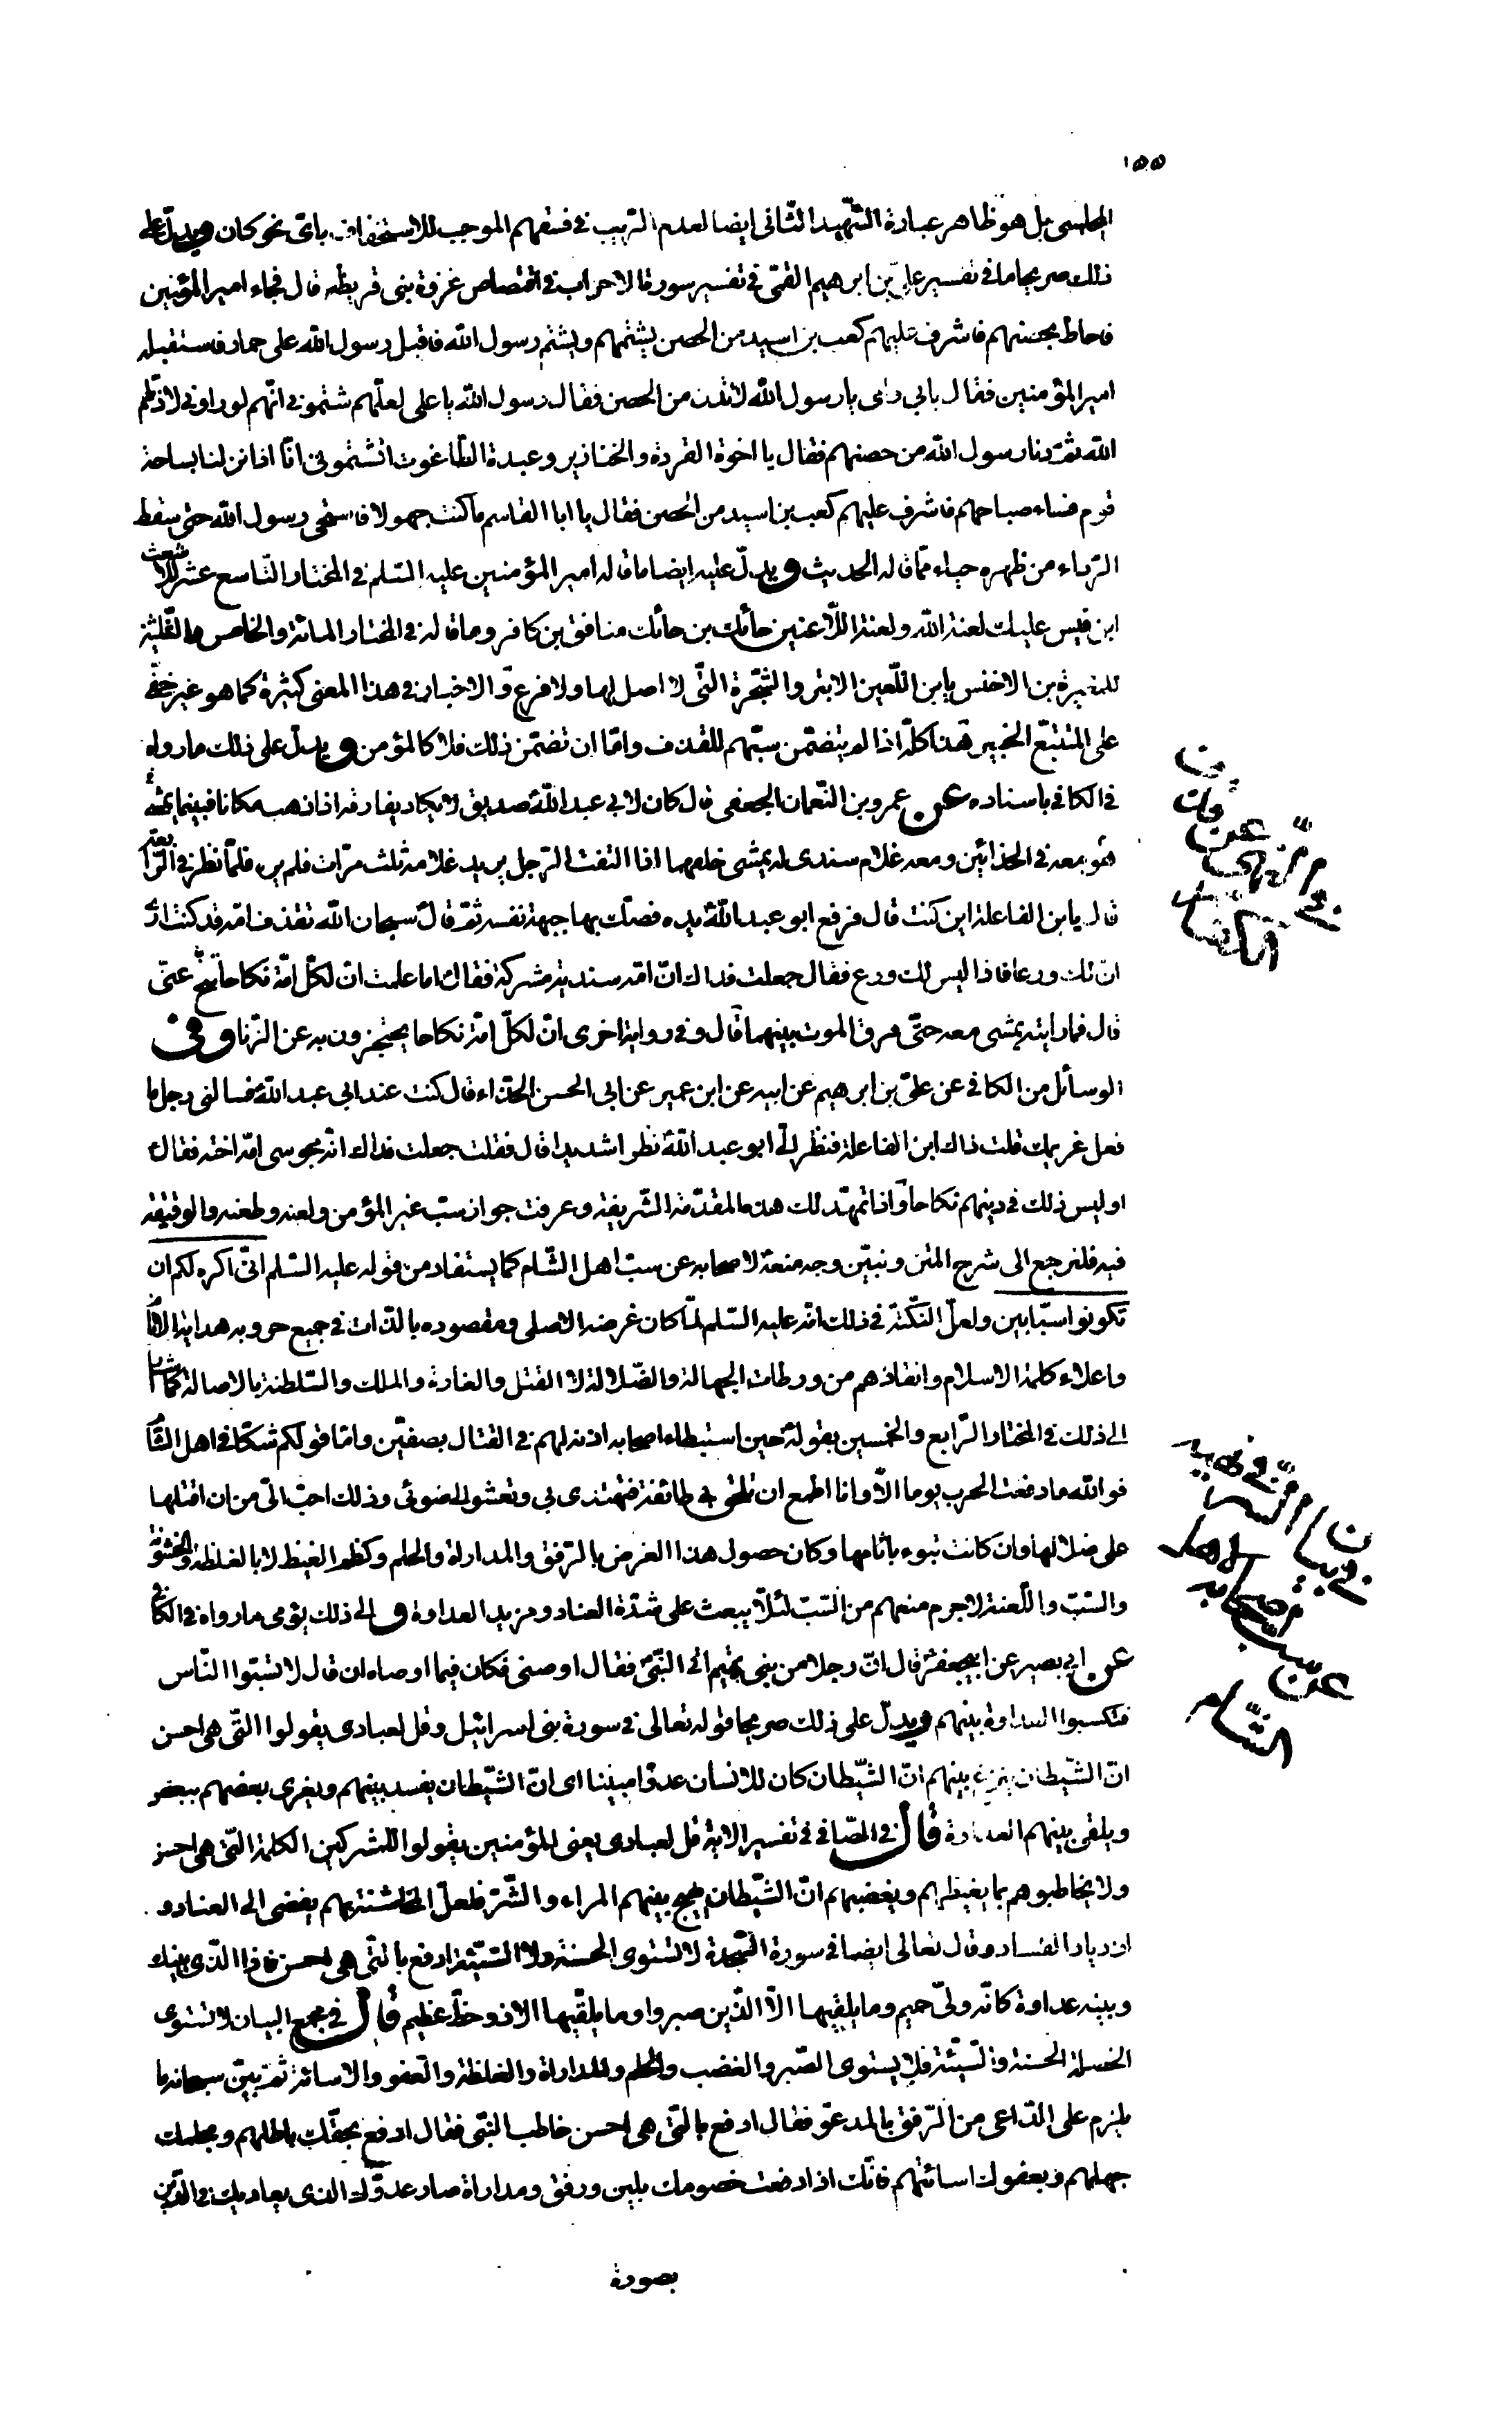 ١٥٥
المجلسى بل هو ظاهر عبارة الشّهيد الثّانى ايضا لعدم الرّيب فى فسقهم الموجب للاستخفاف باىّ نحو كان ويدلّ على
ذلك صريحا ما فى تفسير علىّ بن ابرهيم القمّى فى تفسير سورة الاحزاب فى اقتصاص غزوة بنى قريظه قال فجاء امير المؤمنين
فاحاط بحصنهم فاشرف عليهم كعب بن اسيد من الحصن يشتمهم ويشتم رسول الله فاقبل رسول الله على حمار فاستقبله
امير المؤمنين فقال بابى وامى يا رسول الله لاتدن من الحصن فقال رسول الله يا على لعلّهم شتمونى انّهم لو راونى لاذلّهم
الله ثمّ دنا رسول الله من حصنهم فقال يا اخوة القردة والخنازير وعبدة الطّاغوت اتشتمونى انّا اذا نزلنا بساحة
قوم فساء صباحهم فاشرف عليهم كعب بن اسيد من الحصن فقال يا ابا القاسم ما كنت جهولا فاستحى رسول الله حتى سقط
الرّداء من ظهره حياء ممّا قاله الحديث ويدلّ عليه ايضا ما قاله امير المؤمنين عليه السّلم فى المختار التّاسع عشر للاشعث
ابن قيس عليك لعنة الله ولعنة اللّاعنين حائك بن حائك منافق بن كافر وما قاله فى المختار المائة والخامس والثّلثين
للمغيرة بن الاخنس يا بن اللّعين الابتر والشّجرة التّى لا اصل لها ولا فرع والاخبار فى هذا المعنى كثيرة كما هو غير خفّى
على المتتبّع الخبير هذا كلّه اذا لم يتضمّن سبّهم للقذف وامّا ان تضمّن ذلك فلا كالمؤمن ويدلّ على ذلك ما رواه
فى الكافى باسناده عن عمرو بن النّعمان الجعفى قال كان لابى عبد اللهؑ صديق لا يكاد يفارقه اذا ذهب مكانا فبينما يمشى
هو معه فى الحذائين ومعه غلام سندى له يمشى خلفهما اذا التفت الرّجل يريد غلامه ثلث مرّات فلم يره فلمّا نظر فى الرّابعة
قال يا بن الفاعلة اين كنت قال فرفع ابو عبد اللهؑ يده فصكّ بها جبهة نفسه ثمّ قالؑ سبحان الله تقذف امّه قد كنت ارى
ان لك ورعا فاذا ليس لك ورع فقال جعلت فداك انّ امّه سنديّة مشركة فقال اما علمت ان لكلّ امّة نكاحا تنحّ عنّى
قال فما رايته يمشى معه حتّى فرق الموت بينهما قال وفى رواية اخرى انّ لكلّ امّة نكاحا يحتجزون به عن الزّنا وفى
الوسائل من الكافى عن علىّ بن ابرهيم عن ابيه عن ابن عمير عن ابى الحسن الحذّاء قال كنت عند ابى عبد اللهؑ فسالنى رجل ما
فعل غريمك قلت ذاك ابن الفاعلة فنظر الىّ ابو عبد اللهؑ نظرا شديدا قال فقلت جعلت فداك انّه مجوسى امّه اخته فقال
اوليس ذلك فى دينهم نكاحا واذا تمهّد لك هذه المقدّمة الشّريفة وعرفت جواز سبّ غير المؤمن ولعنه وطعنه والوقيعة
فيه فلنرجع الى شرح المتن ونبيّن وجه منعهؑ لاصحابه عن سبّ اهل الشّام كما يستفاد من قوله عليه السّلم انّى اكره لكم ان
تكونوا سبّابين ولعلّ النّكتة فى ذلك انّه عليه السّلم لمّا كان غرضه الاصلى ومقصوده بالذّات فى جميع حروبه هداية الانام
واعلاء كلمة الاسلام وانقاذهم من ورطات الجهالة والضّلالة لا القتل والغارة والملك والسّلطنة بالاصالة كما اشار
الى ذلك فى المختار الرّابع والخمسين بقولهؑ حين استبطاء اصحابه اذنه لهم فى القتال بصفيّن وامّا قولكم شكّا فى اهل الشّام
فو الله ما دفعت الحرب يوما الّا وانا اطمع ان تلحق بى طائفة فتهتدى بى وتعشو الى ضوئى وذلك احبّ الىّ من ان اقتلها
على ضلالها وان كانت تبوء باثامها وكان حصول هذا الغرض بالرّفق والمداراة والحلم وكظم الغيظ لا بالغلظة والخشونة
والسّبّ واللّعنة لاجرم منعهم من السّبّ لئلّا يبعث على شدّة العناد ومزيد العداوة والى ذلك يؤمى ما رواه فى الكافى
عن ابى بصير عن ابيجعفرؑ قال انّ رجلا من بنى تميم اتى النّبىّ فقال اوصنى فكان فيما اوصاه ان قال لا تسبّوا النّاس
فتكسبوا العداوة بينهم ويدلّ على ذلك صريحا قوله تعالى فى سورة بنى اسرائيل وقل لعبادى يقولوا التّى هى احسن
انّ الشّيطان ينزغ بينهم انّ الشّيطان كان للانسان عدوّا مبينا اى انّ الشّيطان يفسد بينهم ويغرى بعضهم ببعض
ويلقى بينهم العداوة قال فى الصّافى فى تفسير الاية قل لعبادى يعنى المؤمنين يقولوا للمشركين الكلمة التّى هى احسن
ولا يخاطبوهم بما يغيظهم ويغضبهم انّ الشّيطان يهيج بينهم المراء والشّرّ فلعلّ المخاشنة بهم يفضى الى العناد و
ازدياد الفساد وقال تعالى ايضا فى سورة السّجدة لا تستوى الحسنة ولا السّيّئة ادفع بالتّى هى احسن فاذا الّذى بينك
وبينه عداوة كانّه ولىّ حميم وما يلقّيها الّا الّذين صبروا وما يلقّيها الّا ذو حظّ عظيم قال فى مجمع البيان لا تستوى
الخصلة الحسنة والسّيّئة فلا يستوى الصّبر والغضب والحلم والمداراة والغلظة والعفو والاسائة ثمّ بيّن سبحانه ما
يلزم على الدّاعى من الرّفق بالمدعوّ فقال ادفع بالتّى هى احسن خاطب النّبى فقال ادفع بحقّك باطلهم وبحلمك
جهلهم وبعفوك اسائتهم فانّك اذا دفعت خصومك بلين ورفق ومداراة صار عدوّك الذى يعاديك فى الدّين
بصورة
عن سب
الشام